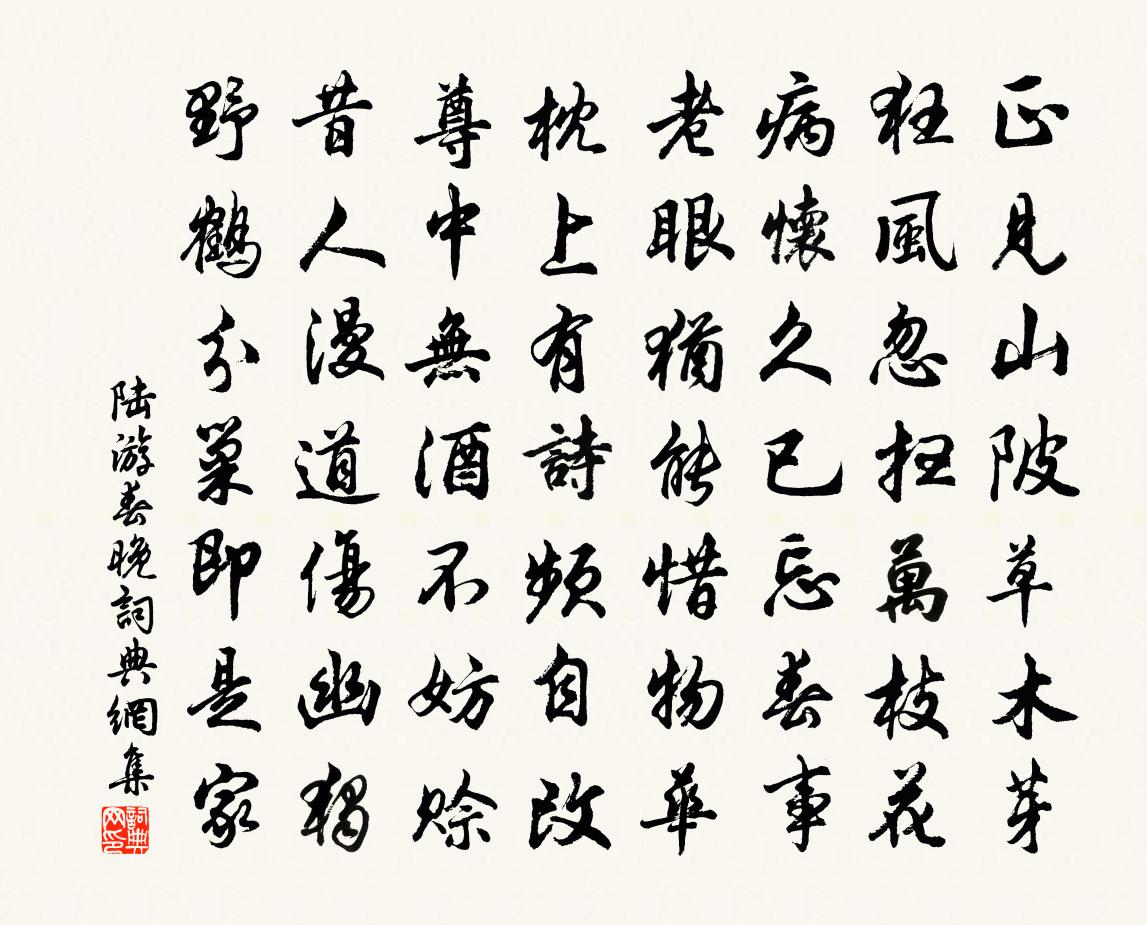 正見山陂草木芽
狂風忽抂萬枝花
病懷久已忘春事
老眼猶能惜物華
枕上有詩頻自改
尊中無酒不妨賒
昔人漫道傷幽獨
野鶴分巢即是家
陆游春晚詞典網集
詞典网印